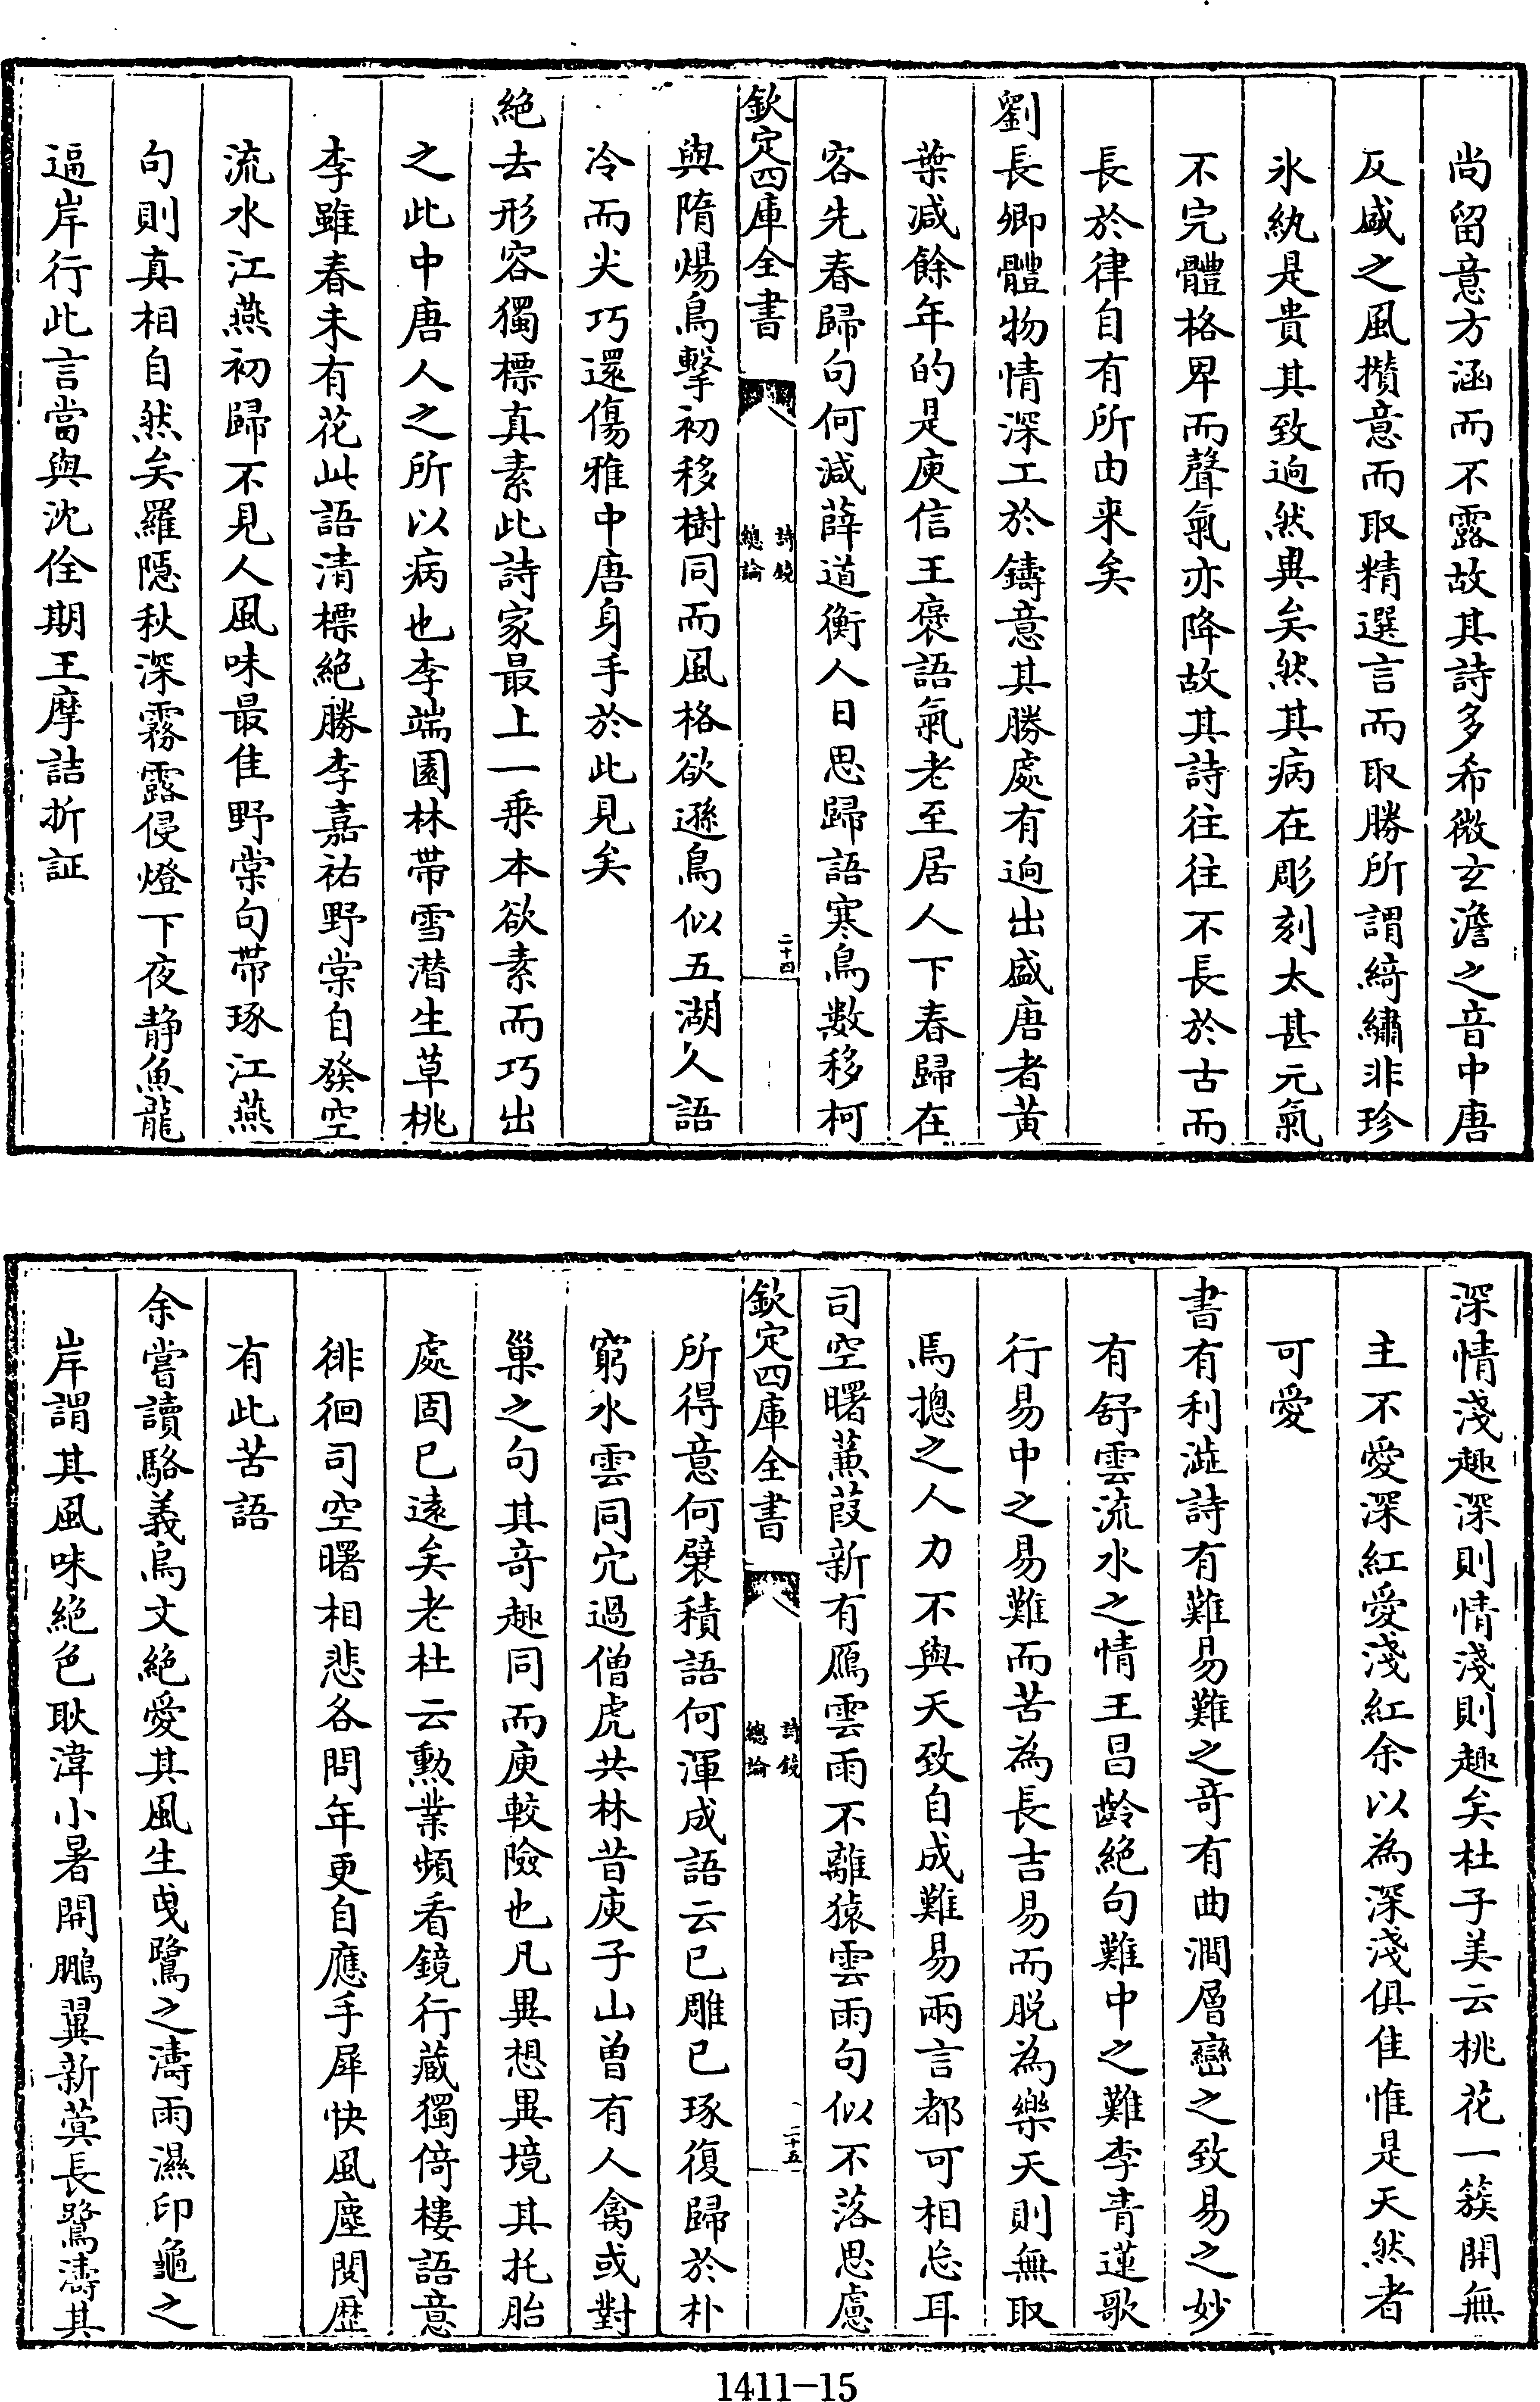 尚留意方涵而不露故其詩多希微玄澹之音中唐
反盛之風攅意而取精選言而取勝所謂綺繡非珍
氷紈是貴其致逈然異矣然其病在彫刻太甚元氣
不完體格卑而聲氣亦降故其詩往往不長於古而
長於律自有所由来矣
劉長卿體物情深工於鑄意其勝處有逈出盛唐者黄
葉減餘年的是庾信王褒語氣老至居人下春歸在
客先春歸句何減薛道衡人日思歸語寒鳥數移柯
欽定四庫全書
詩鏡總論
二十四
與隋煬鳥擊初移樹同而風格欲遜鳥似五湖人語
冷而尖巧還傷雅中唐身手於此見矣
絶去形容獨標真素此詩家最上一乗本欲素而巧出
之此中唐人之所以病也李端園林帶雪潜生草桃
李雖春未有花此語清標絶勝李嘉祐野棠自發空
流水江燕初歸不見人風味最佳野棠句帶琢江燕
句則真相自然矣羅隱秋深霧露侵燈下夜静魚龍
逼岸行此言當與沈佺期王摩詰折証
深情淺趣深則情淺則趣矣杜子美云桃花一簇開無
主不愛深紅愛淺紅余以為深淺俱佳惟是天然者
可愛
書有利澁詩有難易難之竒有曲澗層巒之致易之妙
有舒雲流水之情王昌齡絶句難中之難李青蓮歌
行易中之易難而苦為長吉易而脱為樂天則無取
焉揔之人力不與天致自成難易兩言都可相忘耳
司空曙蒹葭新有鴈雲雨不離猿雲雨句似不落思慮
欽定四庫全書
詩鏡總論
二十五
所得意何襞積語何渾成語云已雕已琢復歸於朴
窮水雲同穴過僧虎共林昔庾子山曽有人禽或對
巢之句其竒趣同而庾較險也凡異想異境其托胎
處固已遠矣老杜云勲業頻看鏡行藏獨倚樓語意
徘徊司空曙相悲各問年更自應手犀快風塵閲歴
有此苦語
余嘗讀駱義烏文絶愛其風生曵鷺之濤雨濕印龜之
岸謂其風味絶色耿湋小暑開鵬翼新蓂長鷺濤其
1411-15